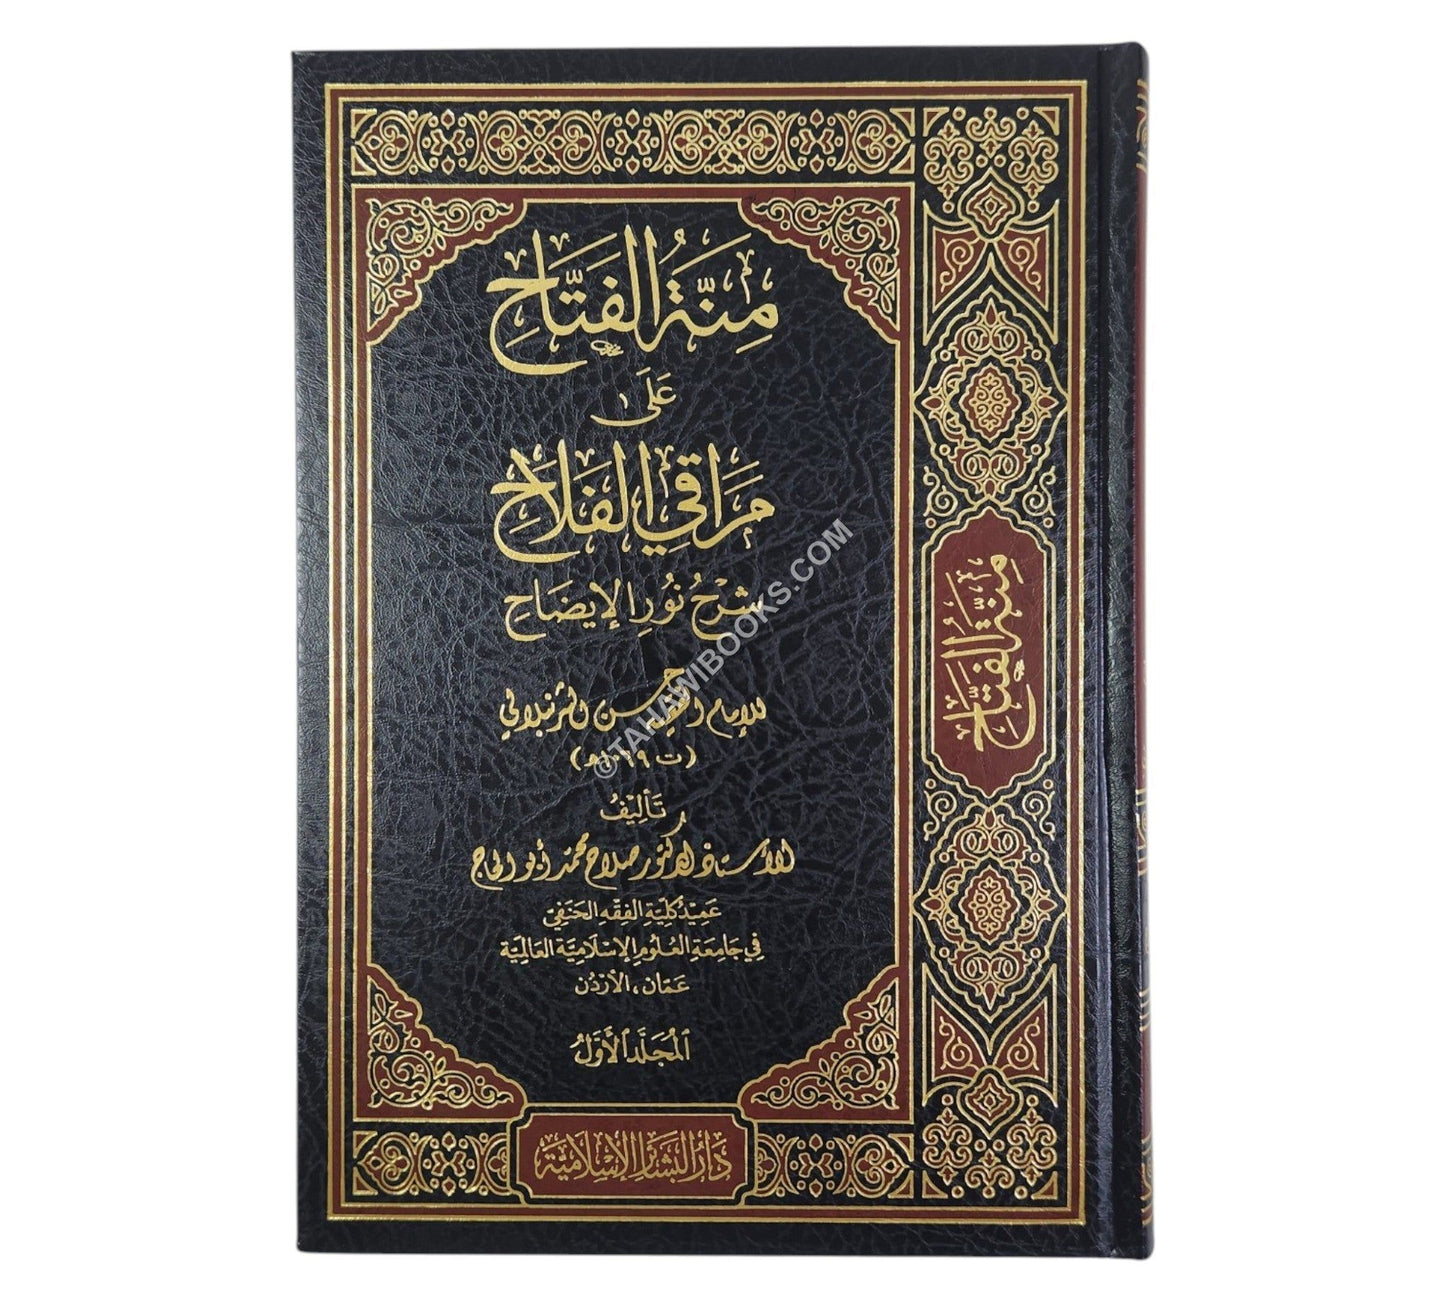 مِنَّةُ الْفَتَّاحِ
عَلَى
مَرَاقِي الْفَلَاحِ
شَرْحُ نُورِ الْإِيضَاحِ
للإمام الفقيه حسن الشرنبلالي
(ت ١٠٦٩هـ)
تَأْلِيفُ
الأستاذ الدكتور صلاح محمد أبو الحاج
عَمِيد كُلِيَّةِ الفِقْهِ الحَنَفِيّ
فِي جَامِعَةِ العُلُومِ الإِسْلَامِيَّةِ العَالَمِيَّةِ
عَمَّان، الأُرْدُن
المُجَلَّدُ الأَوَّلُ
دَارُ البَشَائِرِ الإِسْلَامِيَّة
مِنَّةُ الفَتَّاحِ
©TAHAWIBOOKS.COM